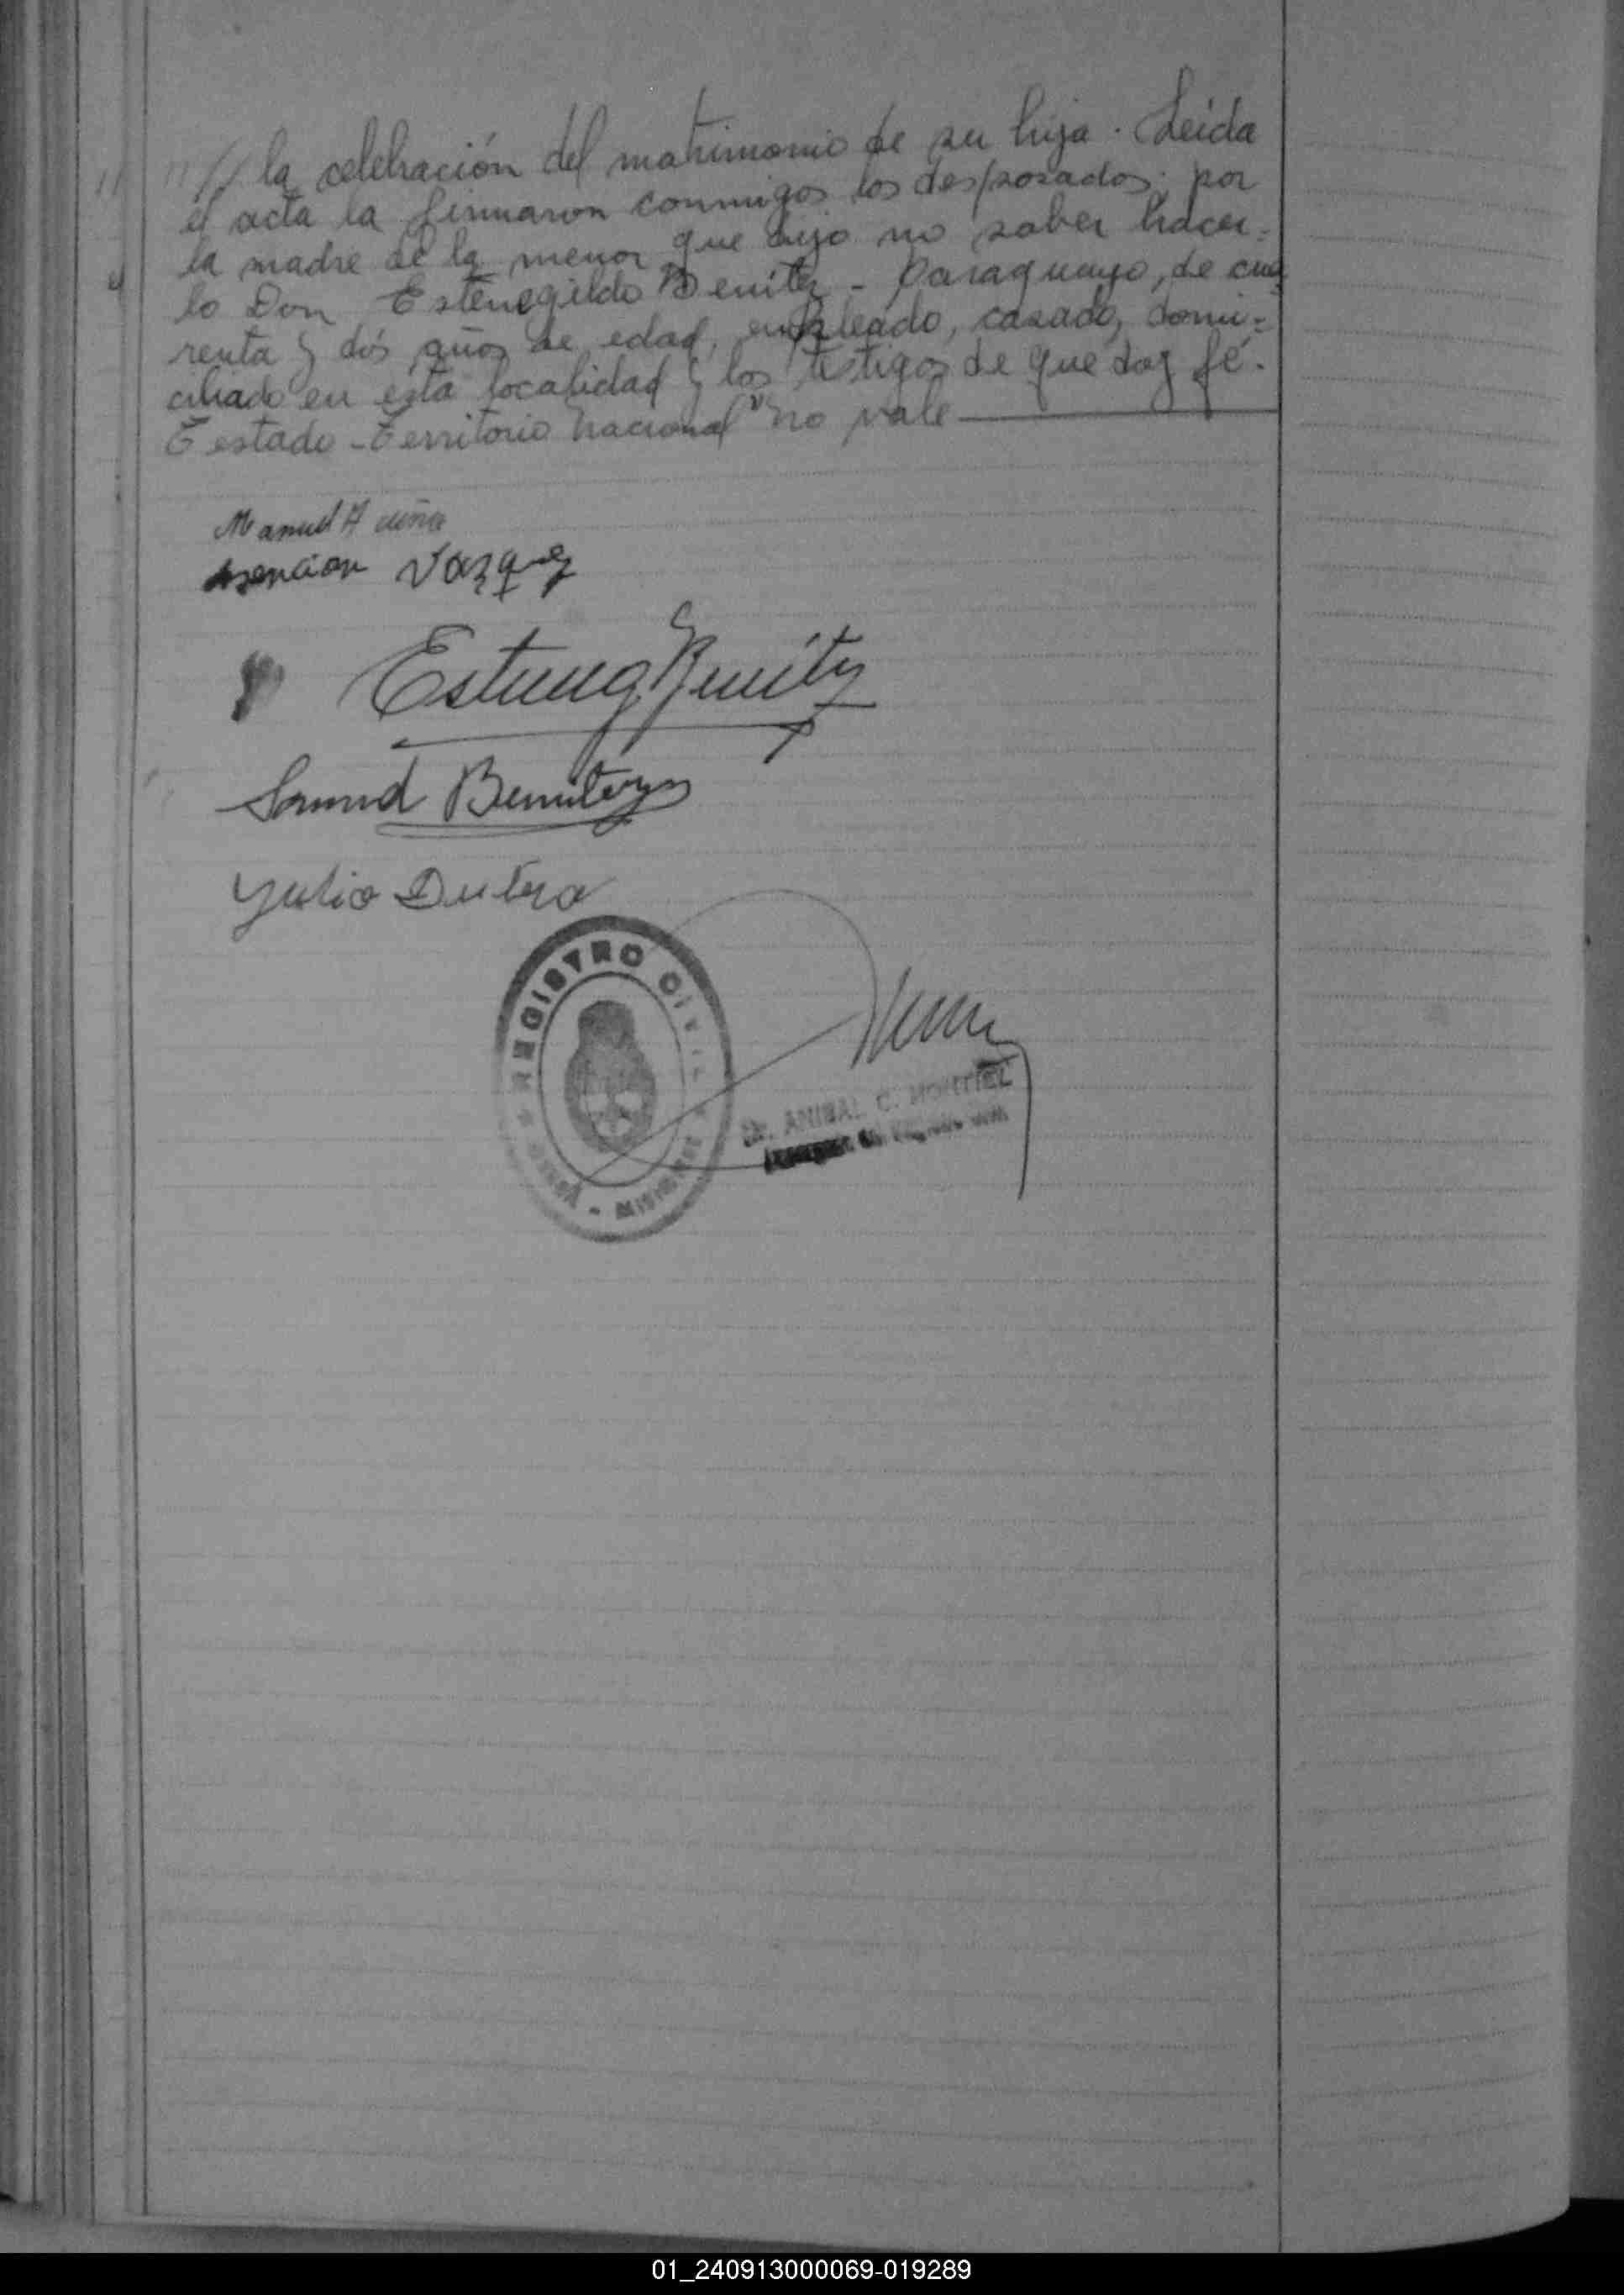 // la celebración del matrimonio de su hija. Leida
el acta la firmaron conmigos los desposados; por
la madre de la menor que dijo no saber hacer=
lo Don Estenegildo Benitez - Paraguayo, de cua
renta y dós años de edad, empleado, casado, domi=
ciliado en esta localidad y los testigos de que doy fé.
T estado - Territorio Nacional "no vale
Manuel Acuña
Asencion Vazquez
Esteneg Benitez
Samuel Benitez
Yulio Dutra
REGISTRO CIVIL
MISIONES
Dr. ANIBAL C. MONTIEL
01_240913000069-019289